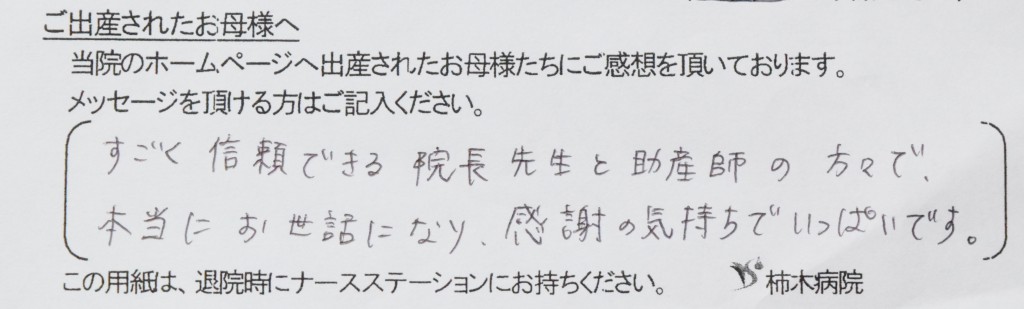 ご出産されたお母様へ
当院のホームページへ出産されたお母様たちにご感想を頂いております。
メッセージを頂ける方はご記入ください。
すごく信頼できる院長先生と助産師の方々で、
本当にお世話になり、感謝の気持ちでいっぱいです。
この用紙は、退院時にナースステーションにお持ちください。 柿木病院